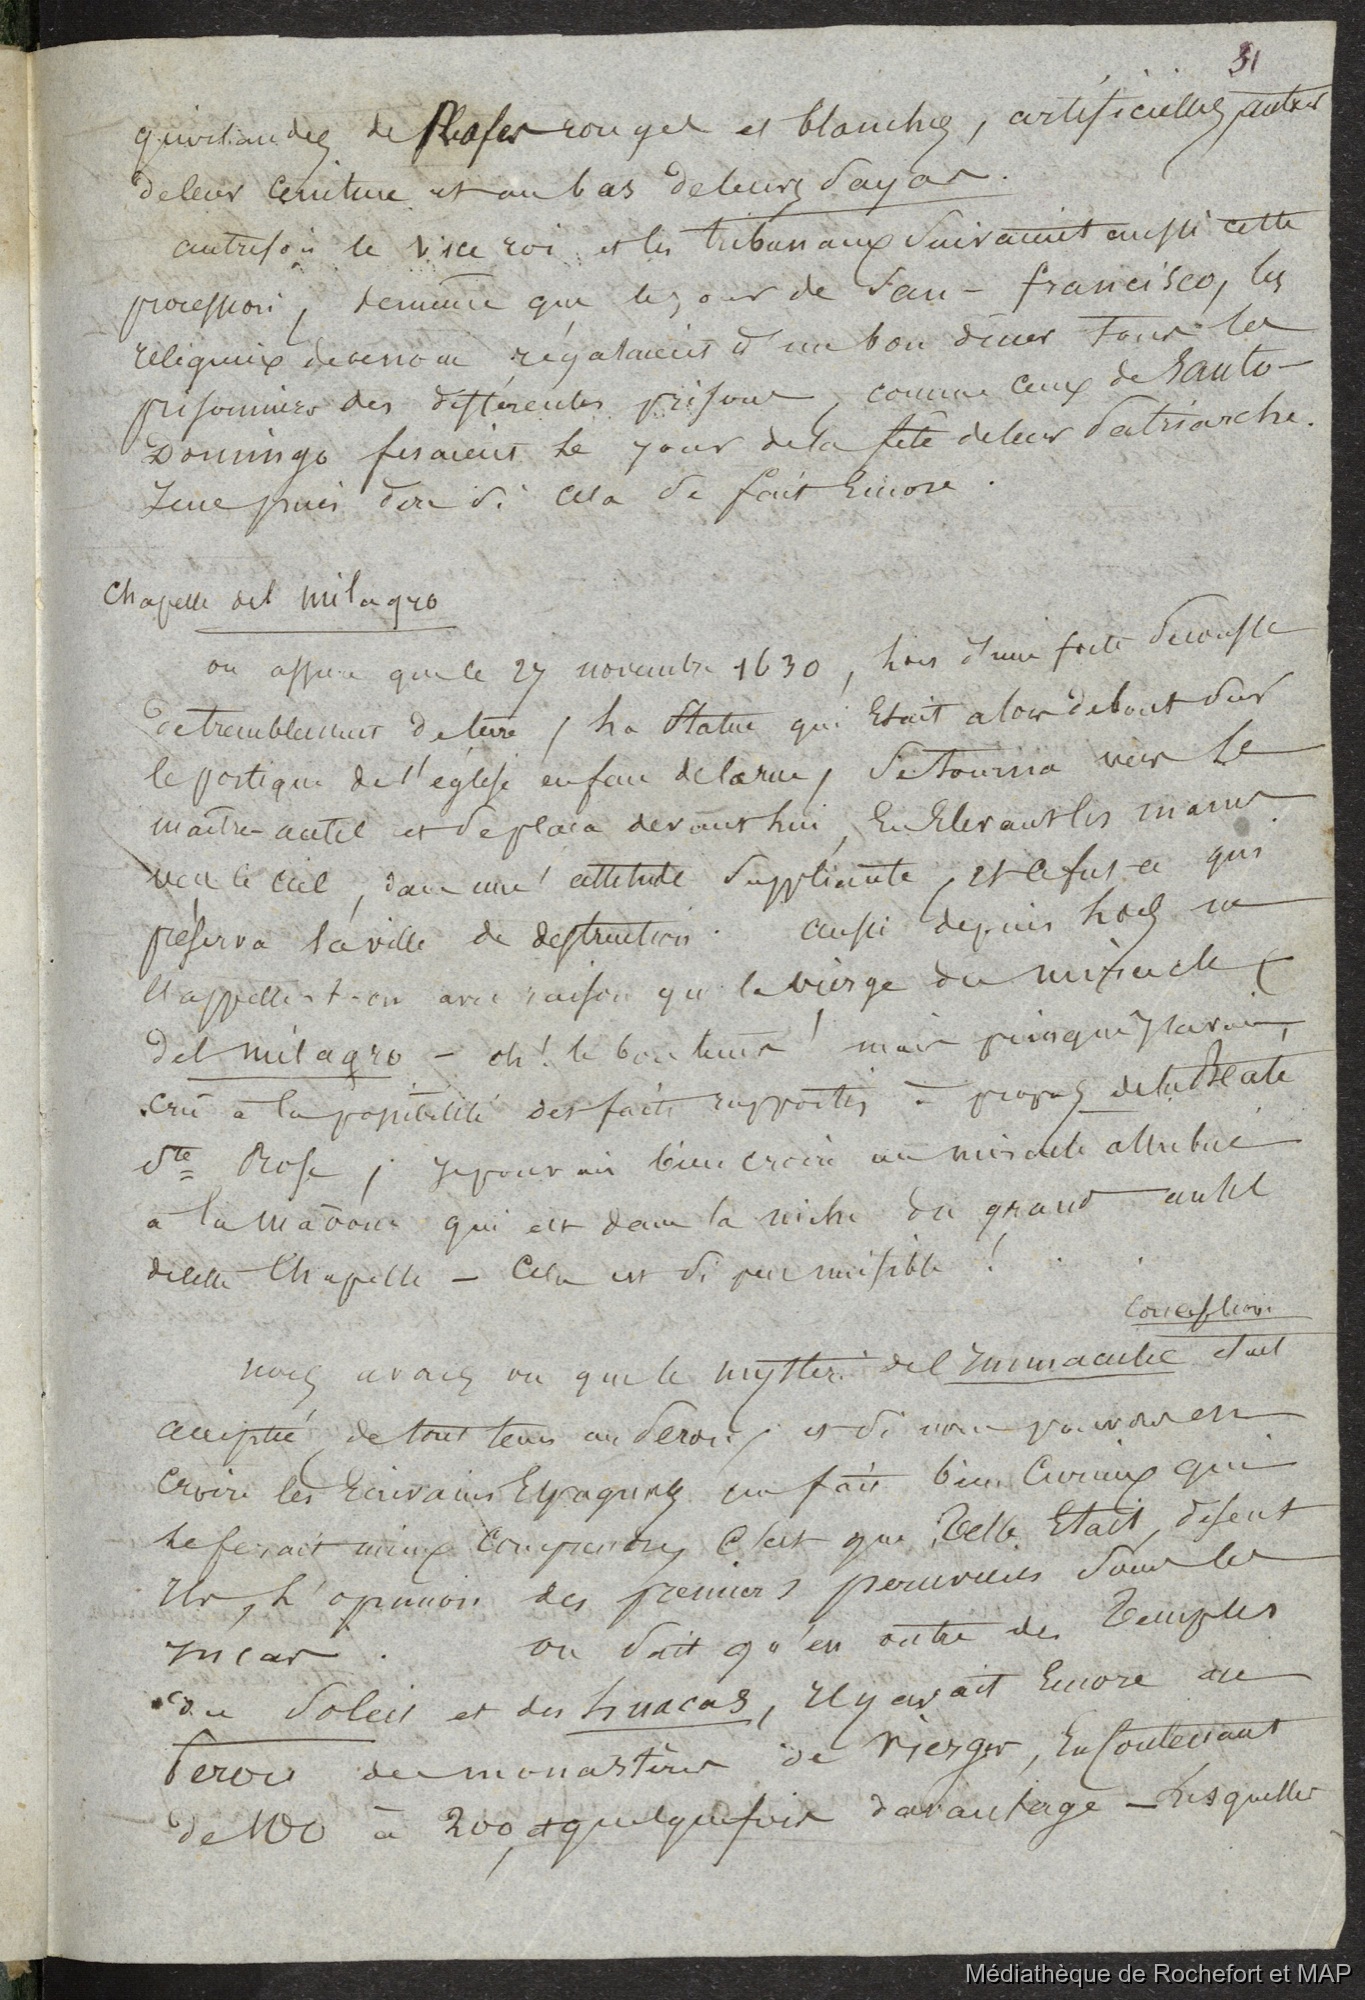 31
guirlandes de Roses rouges et blanches, artificielles autour
de leur ceinture et au bas de leurs Sayas.
autrefois le vice roi et les tribunaux Suivaient aussi cette
procession, de même que le jour de San-francisco, les
religieux de ce nom régalaient d'un bon diner tous les
prisonniers des différentes prisons, comme ceux de Santo-
Domingo fesaient le jour de la fête de leur Patriarche.
Je ne puis dire Si cela Se fait Encore.
Chapelle del milagro
on assure que le 27 novembre 1630, lors d'une forte Secousse
de tremblement de terre, la Statue qui Etait alors debout Sur
le portique de l'église en face de la rue, Se tourna vers le
maître-autel et Se plaça devant lui, En Elevant les mains
vers le ciel, dans une attitude Suppliante, et ce fut ce qui
préserva la ville de destruction. aussi depuis lors ne
l'appelle-t-on avec raison que la vierge du miracle (
del milagro - oh! le bon tems! mais puisque j'avais
cru à la possibilité des faits rapportés à propos de la Beate
Ste Rose, je pouvais bien croire au miracle attribué
à la madone qui est dans la niche du grand autel
de cette Chapelle - Cela est Si peu nuisible!
Conception
nous avons vu que le mystère de l'Immaculée Etait
accepté de tout tems au Perou, et Si nous pouvons en
croire les Ecrivains Espagnols un fait bien Curieux qui
le ferait mieux comprendre, C'est que Telle Etait, disent
Ils, l'opinion des premiers peruviens Sous les
Incas. on Sait qu'en outre des Temples
du Soleil et des huacas, Il y avait Encore au
Perou des monastères de Vierges, En Contenant
de 100 à 200, et quelquefois davantage - Lesquelles
Médiathèque de Rochefort et MAP